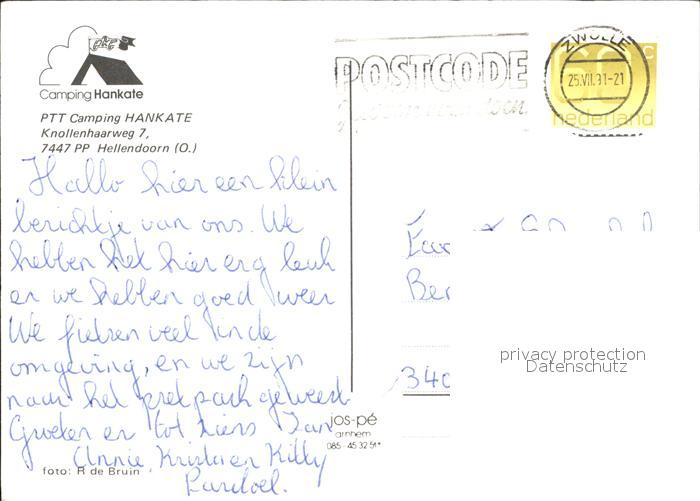 ptt
Camping Hankate
PTT Camping HANKATE
Knollenhaarweg 7,
7447 PP Hellendoorn (O.)
POSTCODE
ZWOLLE
25.VII.91-21
60 C
nederland
Hallo hier een klein
berichtje van ons. We
hebben het hier erg leuk
en we hebben goed weer
We fietsen veel in de
omgeving, en we zijn
naar het pretpark geweest
Groeten en tot ziens Jan
Annie, Krista en Kitty
foto: R de Bruin
jos-pé
arnhem
085-45 32 51*
Ber
340
privacy protection
Datenschutz